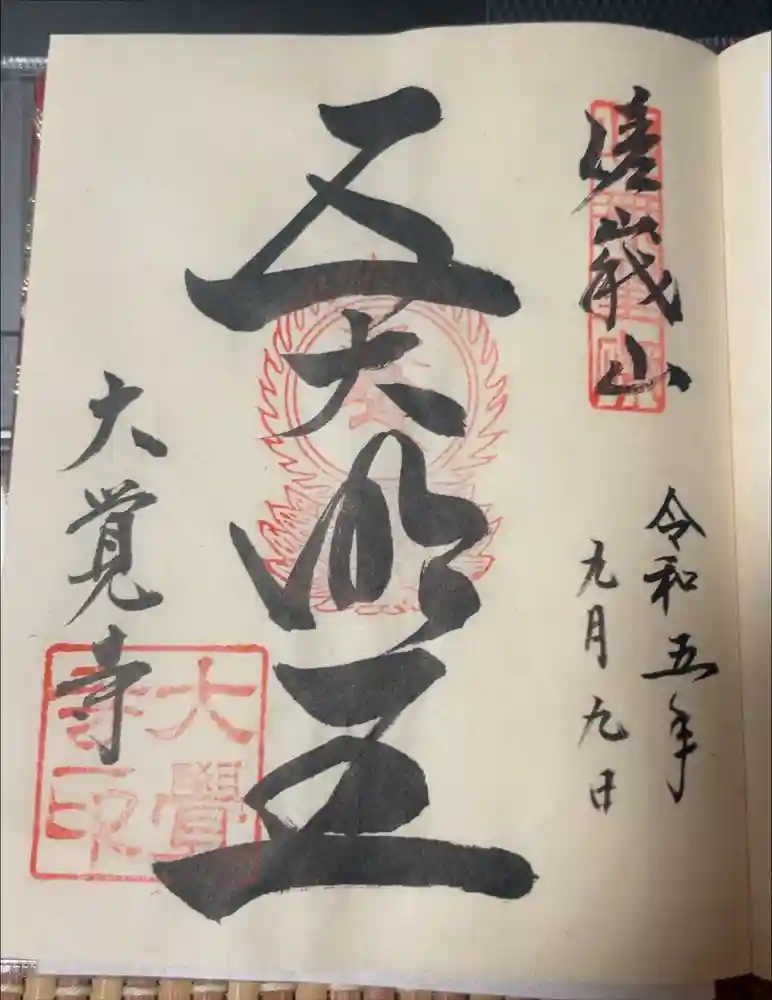 嵯峩山
令和五年
九月九日
五大明王
大覚寺
大覺
寺印